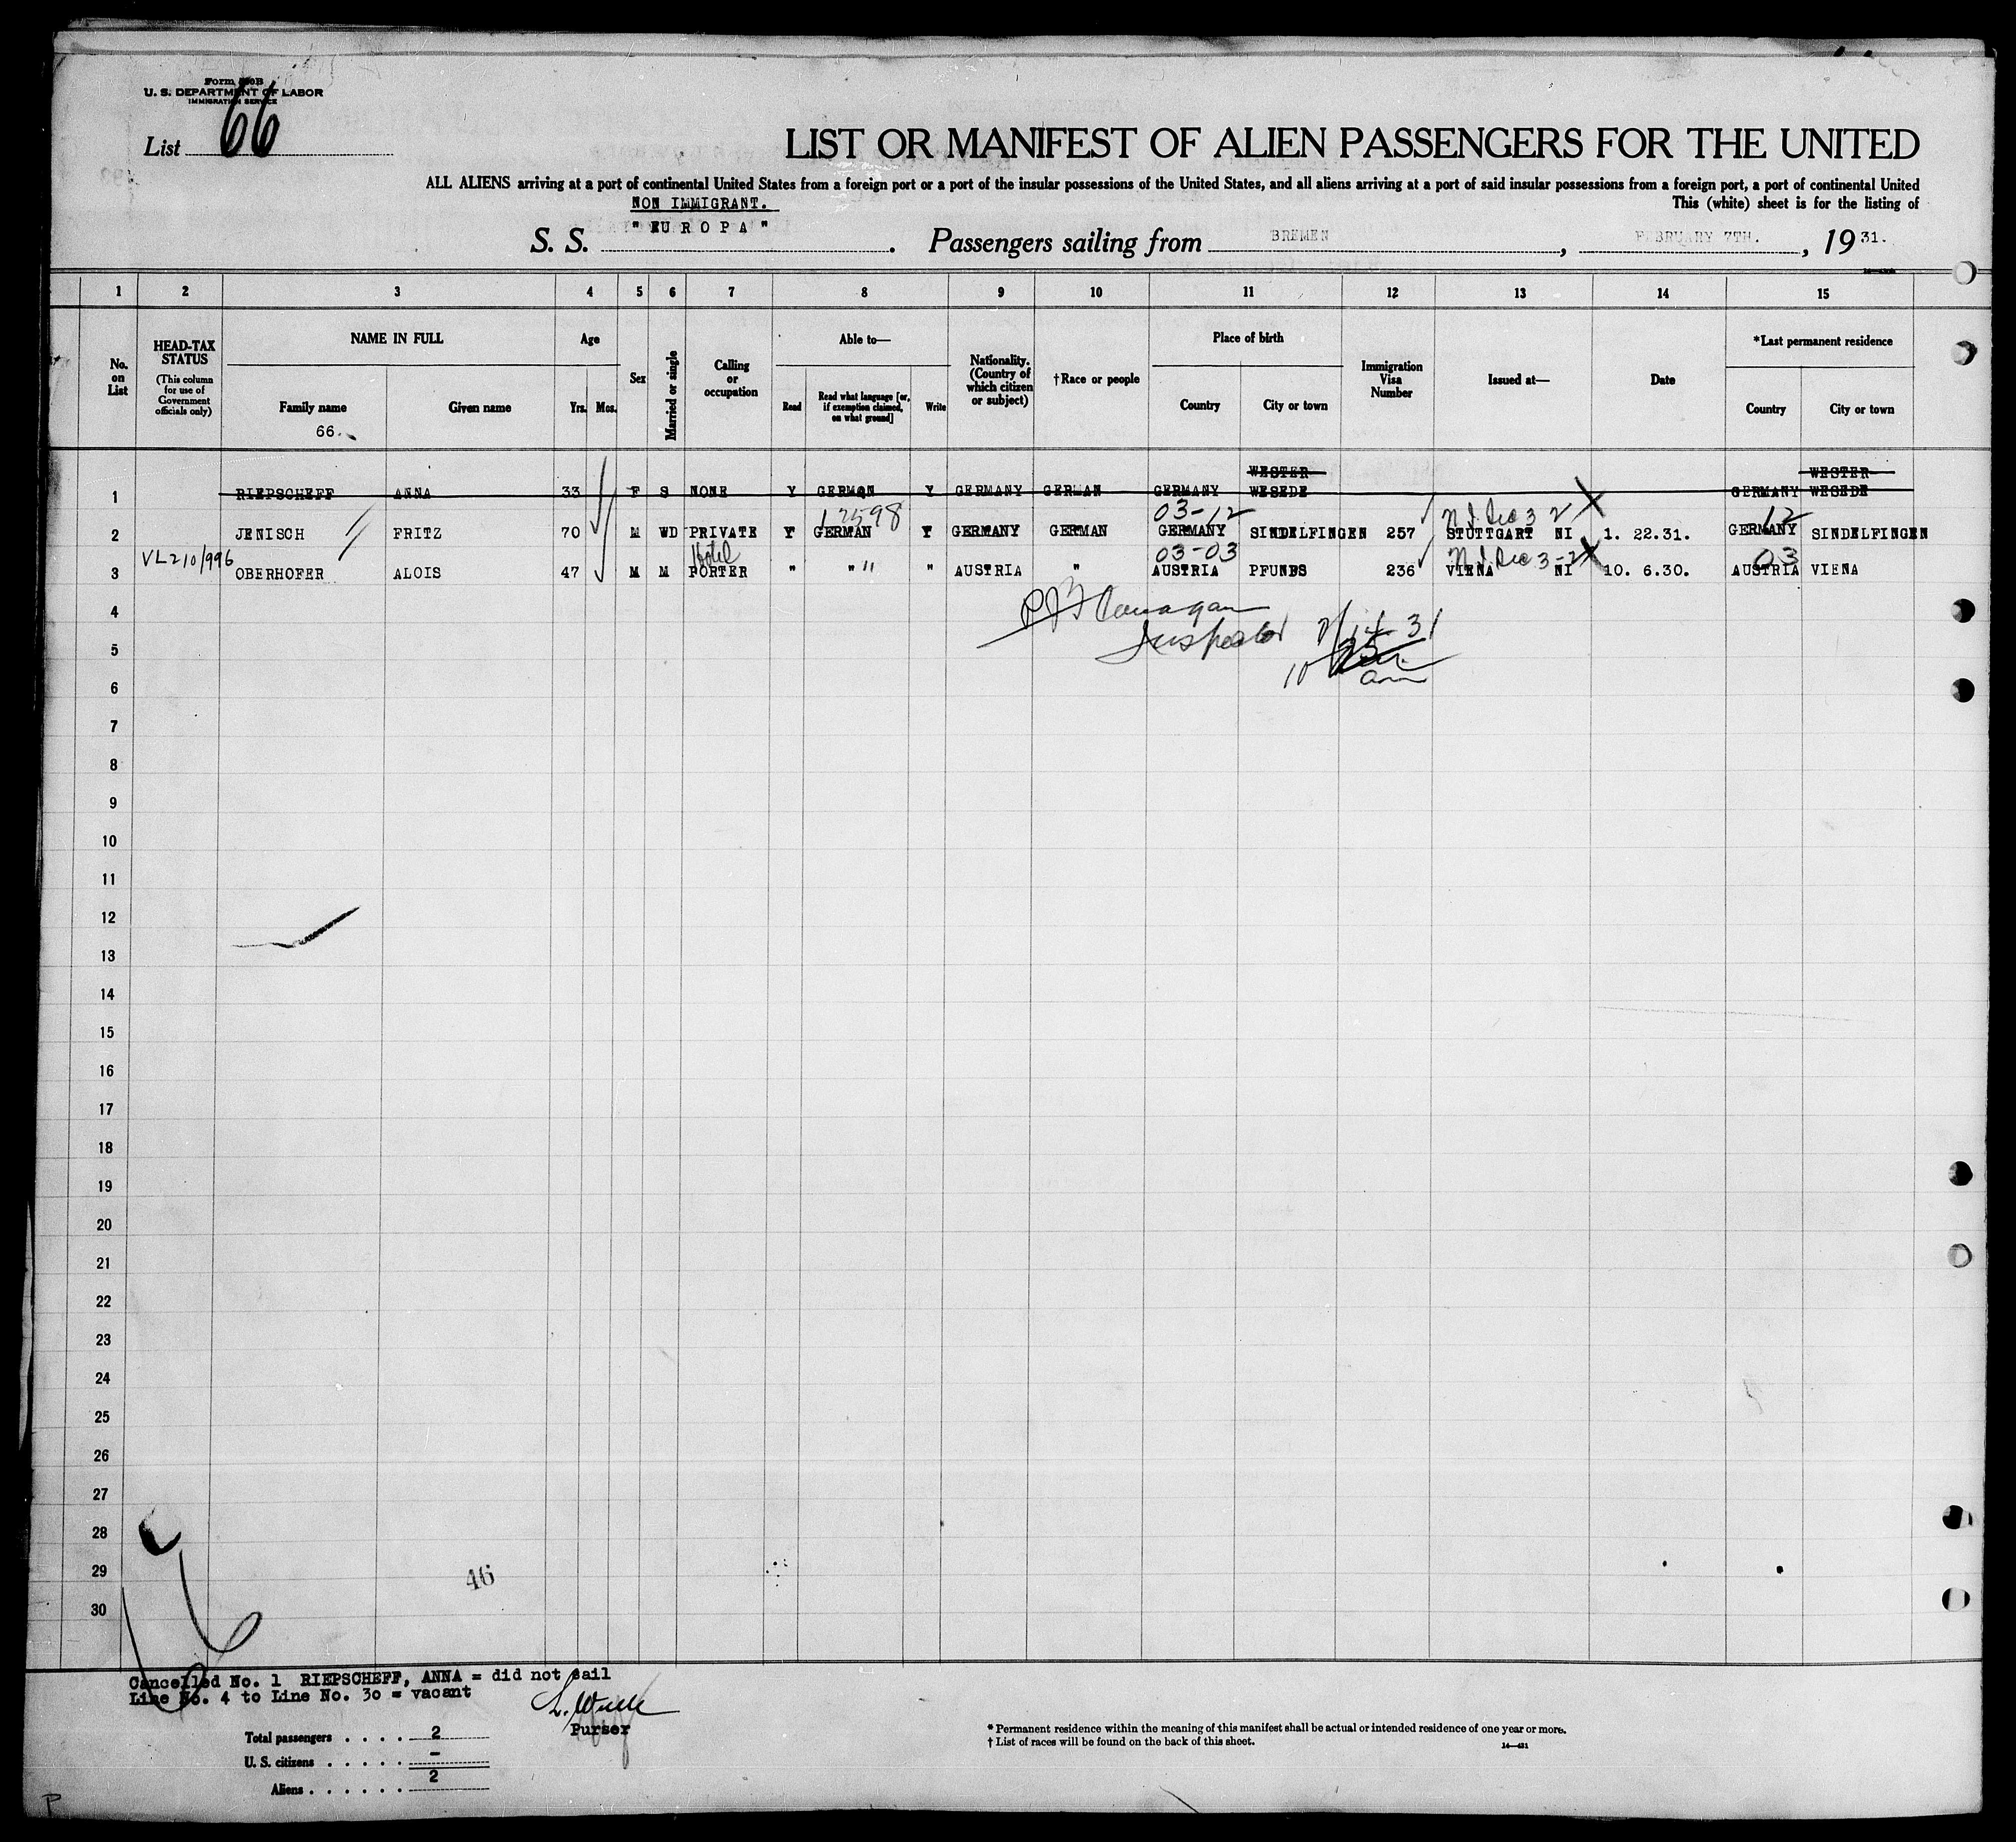 Form 500B
U. S. DEPARTMENT OF LABOR
IMMIGRATION SERVICE
List 66
LIST OR MANIFEST OF ALIEN PASSENGERS FOR THE UNITED
ALL ALIENS arriving at a port of continental United States from a foreign port or a port of the insular possessions of the United States, and all aliens arriving at a port of said insular possessions from a foreign port, a port of continental United
NON IMMIGRANT. This (white) sheet is for the listing of
S. S. "EUROPA". Passengers sailing from BREMEN, FEBRUARY 7TH., 1931.
1 2 3 4 5 6 7 8 9 10 11 12 13 14 15
No. on List
HEAD-TAX STATUS
(This column for use of Government officials only)
NAME IN FULL
Family name Given name
66.
Age
Yrs. Mos.
Sex
Married or single
Calling or occupation
Able to—
Read
Read what language [or, if exemption claimed, on what ground]
Write
Nationality. (Country of which citizen or subject)
†Race or people
Place of birth
Country City or town
Immigration Visa Number
Issued at—
Date
*Last permanent residence
Country City or town
WESTER WESTER
1 RIEPSCHEFF ANNA 33 F S NONE Y GERMAN Y GERMANY GERMAN GERMANY WESEDE GERMANY WESEDE
12598 03-12 N.I. Sec 3 2 12
2 JENISCH FRITZ 70 M WD PRIVATE Y GERMAN Y GERMANY GERMAN GERMANY SINDELFINGEN 257 STUTTGART NI 1. 22.31. GERMANY SINDELFINGEN
VL210/996 Hotel 03-03 N.I. Sec 3-2 03
3 OBERHOFER ALOIS 47 M M PORTER " " " " AUSTRIA " AUSTRIA PFUNDS 236 VIENA NI 10. 6.30. AUSTRIA VIENA
4
Inspector 2/14 31
5
10 am
6
7
8
9
10
11
12
13
14
15
16
17
18
19
20
21
22
23
24
25
26
27
28
29 46
30
Cancelled No. 1 RIEPSCHEFF, ANNA = did not sail
Line No. 4 to Line No. 30 = vacant
Purser
Total passengers . . . . 2
U. S. citizens . . . . . –
Aliens . . . . . . 2
* Permanent residence within the meaning of this manifest shall be actual or intended residence of one year or more.
† List of races will be found on the back of this sheet.
14—431